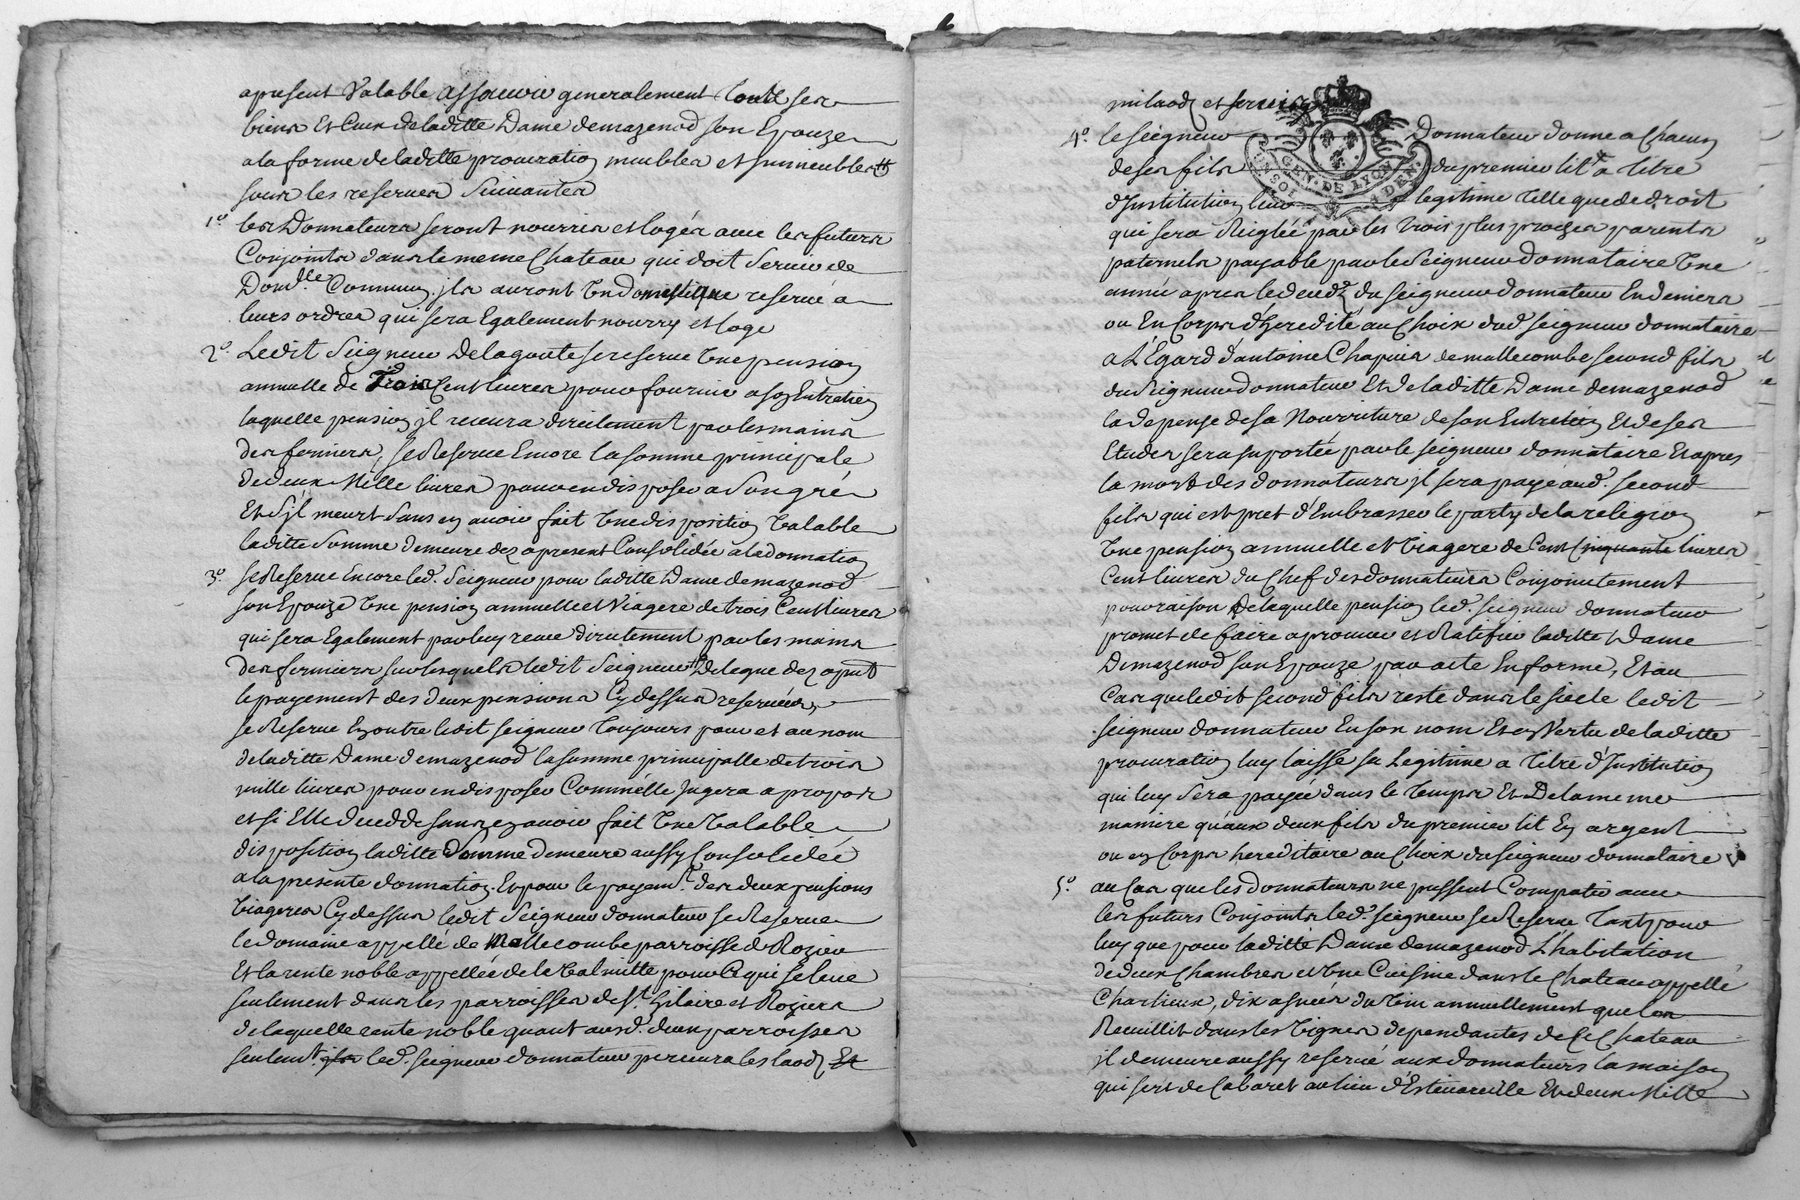 apresent Valable assavoir generalement tout ses
biens Et Ceux de laditte Dame demazenod son Epouze
a la forme de laditte procuration meubles et immeubles
sous les reserves Suivantes
1.º les Donnateurs seront nourris et logés avec les futurs
Conjoints dans le meme Chateau qui doit Servir de
Domi.lle Commun, jls auront Un domestique reservé a
leurs ordres qui sera Egalement nourry et logé
2.º Ledit Seigneur Delagoute se reserve Une pension
annuelle de Trois Cent livres pour fournir a son Entretien
laquelle pension jl recevra directement par les mains
des fermiers, se Reserve Encore la somme principale
de deux Mille livres pour en disposer a Son gré
Et S'jl meurt Sans en avoir fait Une disposition Valable
laditte Somme demeure dez apresent Consolidée a la donnation
3.º se Reserve Encore led. Seigneur pour laditte Dame demazenod
son Epouze Une pension annuelle et Viagere de trois Cent livres
qui sera Egalement par luy receue directement par les mains
des fermiers sur lesquels ledit Seigneur Delegue dez aprnt
le payement des deux pensions Cy dessus reservées,
se Reserve En outre ledit seigneur Toujours pour et au nom
de laditte Dame demazenod la somme principalle de trois
mille livres pour en disposer Comm'elle Jugera a propos
et si Elle decedde sans en avoir fait Une Valable
disposition laditte Somme demeure aussy Consolidée
a la presente donnation. Et pour le payem.t des deux pensions
Viageres Cy dessus ledit Seigneur donnateur se Reserve
le domaine appellé de Mallecombe parroisse de Rozier
Et la rente noble appellée de la Valmitte pour Ce qui se leve
seulement dans les parroisses de S.t hilaire et Roziers
de laquelle rente noble quant ausd. deux parroisses
seulem.t led. seigneur donnateur percevra les laods Et
milaods et servis
4.º le seigneur Donnateur donne a Chacun
de ses fils du premier lit a titre
d'Institution leur legitime telle que de droit
qui sera Reiglée par les trois plus proches parents
paternels payable par le Seigneur donnataire Une
année apres le decedz du seigneur donnateur En deniers
ou En Corps d'heredité au Choix dud. seigneur donnataire
a L'Egard d'antoine Chapuis de mallecombe second fils
du Seigneur donnateur Et de laditte Dame demazenod
la depense de sa Nourriture de son Entretien Et de ses
Etudes sera suportée par le seigneur donnataire Et apres
la mort des donnateurs jl sera payé aud. second
fils qui est pret d'Embrasser le party de la religion
Une pension annuelle et Viagere de Cent Cinquante livres
Cent livres du Chef des donnateurs Conjointement
pour raison de laquelle pension led. seigneur donnateur
promet de faire aprouver et Ratifier laditte Dame
Demazenod son Epouze par acte En forme, Et au
Cas que ledit second fils reste dans le siecle ledit
seigneur donnateur En son nom Et en Vertu de laditte
procuration luy laisse sa Legitime a titre d'Institution
qui luy Sera payée dans le temps Et De la meme
maniere qu'aux deux fils du premier lit En argent
ou en Corps hereditaire au Choix du Seigneur donnataire
5.º au Cas que les donnateurs ne pussent Compatir avec
les futurs Conjoints led. seigneur se Reserve Tant pour
luy que pour laditte Dame demazenod L'habitation
de deux Chambres et Une Cuisine dans le Chateau appellé
Charlieux, dix asnées du Vin annuellement que l'on
Receuillit dans les Vignes dependantes de Ce Chateau
jl demeure aussy reservé aux donnateurs la maison
qui sert de Cabaret au lieu d'Estivareille Et deux Mille
GEN. DE LYON